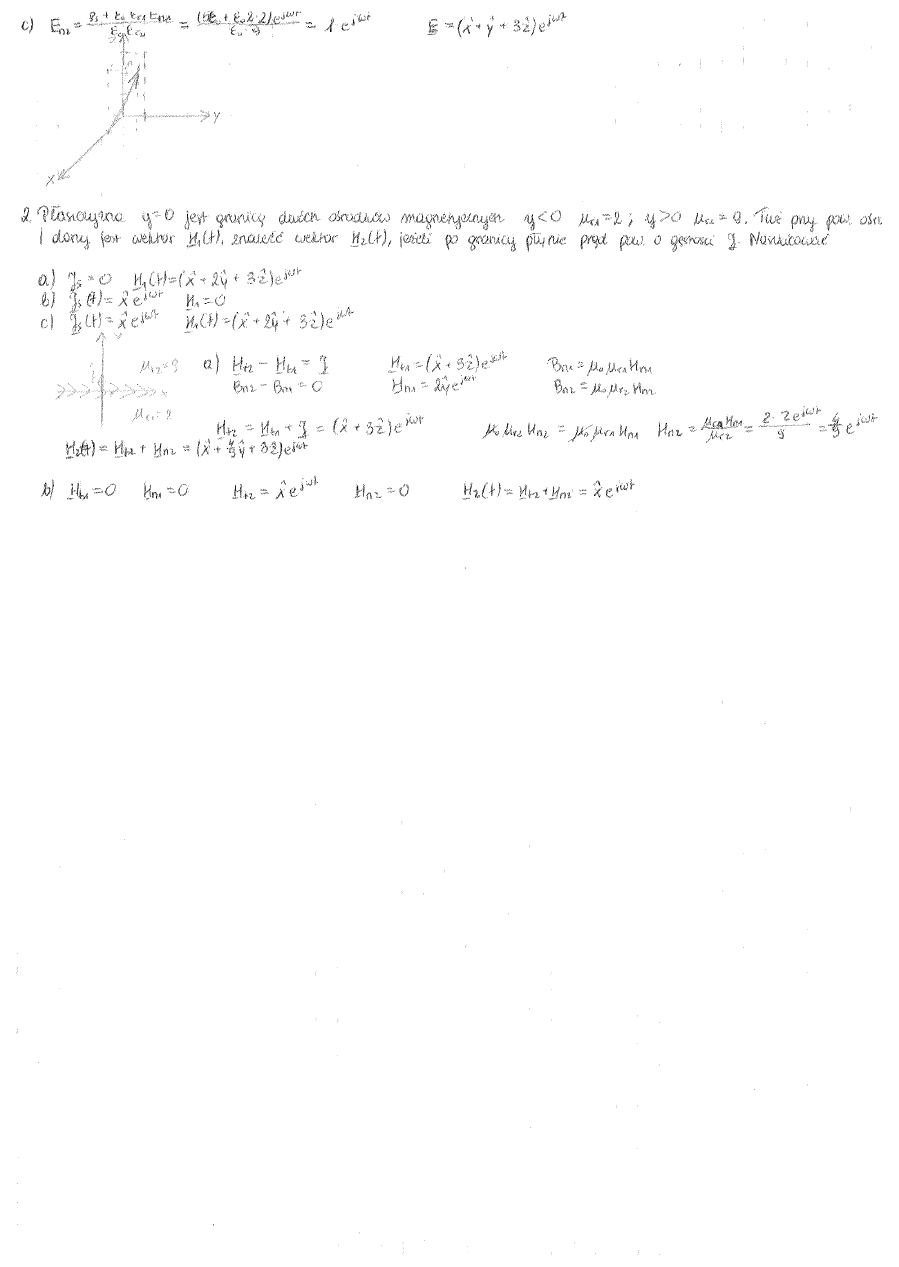 c) E_n2 = (ρ_s + ε_0 ε_r1 E_n1)/(ε_0 ε_r2) = (5ε_0 + ε_0 2·2)e^jωt/(ε_0·9) = 1 e^jωt E = (x̂ + ŷ + 3ẑ)e^jωt
Y
X
2. Płaszczyzna y=0 jest granicą dwóch ośrodków magnetycznych y<0 μ_r1=2; y>0 μ_r2=9. Tuż przy pow. ośr.
1 dany jest wektor H_1(t), znaleźć wektor H_2(t), jeśli po granicy płynie prąd pow. o gęstości J. Naszkicować
a) J_s = 0 H_1(t)=(x̂ + 2ŷ + 3ẑ)e^jωt
b) J_s(t) = x̂ e^jωt H_1 = 0
c) J_s(t) = x̂ e^jωt H_1(t) = (x̂ + 2ŷ + 3ẑ)e^jωt
μ_r2=9
x
μ_r1=2
a) H_t2 − H_t1 = J H_t1 = (x̂ + 3ẑ)e^jωt B_n1 = μ_0 μ_r1 H_n1
B_n2 − B_n1 = 0 H_n1 = 2ŷe^jωt B_n2 = μ_0 μ_r2 H_n2
H_t2 = H_t1 + J = (x̂ + 3ẑ)e^jωt μ_0 μ_r2 H_n2 = μ_0 μ_r1 H_n1 H_n2 = μ_r1 H_n1/μ_r2 = 2·2e^jωt/9 = 4/9 e^jωt
H_2(t) = H_t2 + H_n2 = (x̂ + 4/9 ŷ + 3ẑ)e^jωt
b) H_t1 = 0 H_n1 = 0 H_t2 = x̂ e^jωt H_n2 = 0 H_2(t) = H_t2 + H_n2 = x̂ e^jωt